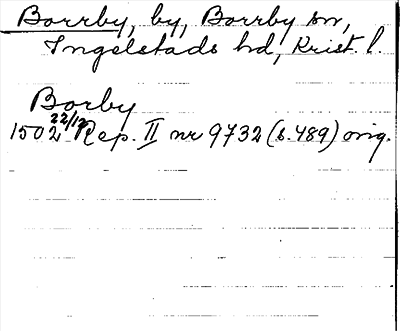 Borrby, by, Borrby sn,
Ingelstads hd, Krist. l.
Borby
1502 22/12 Rep. II nr 9732 (s. 489) orig.